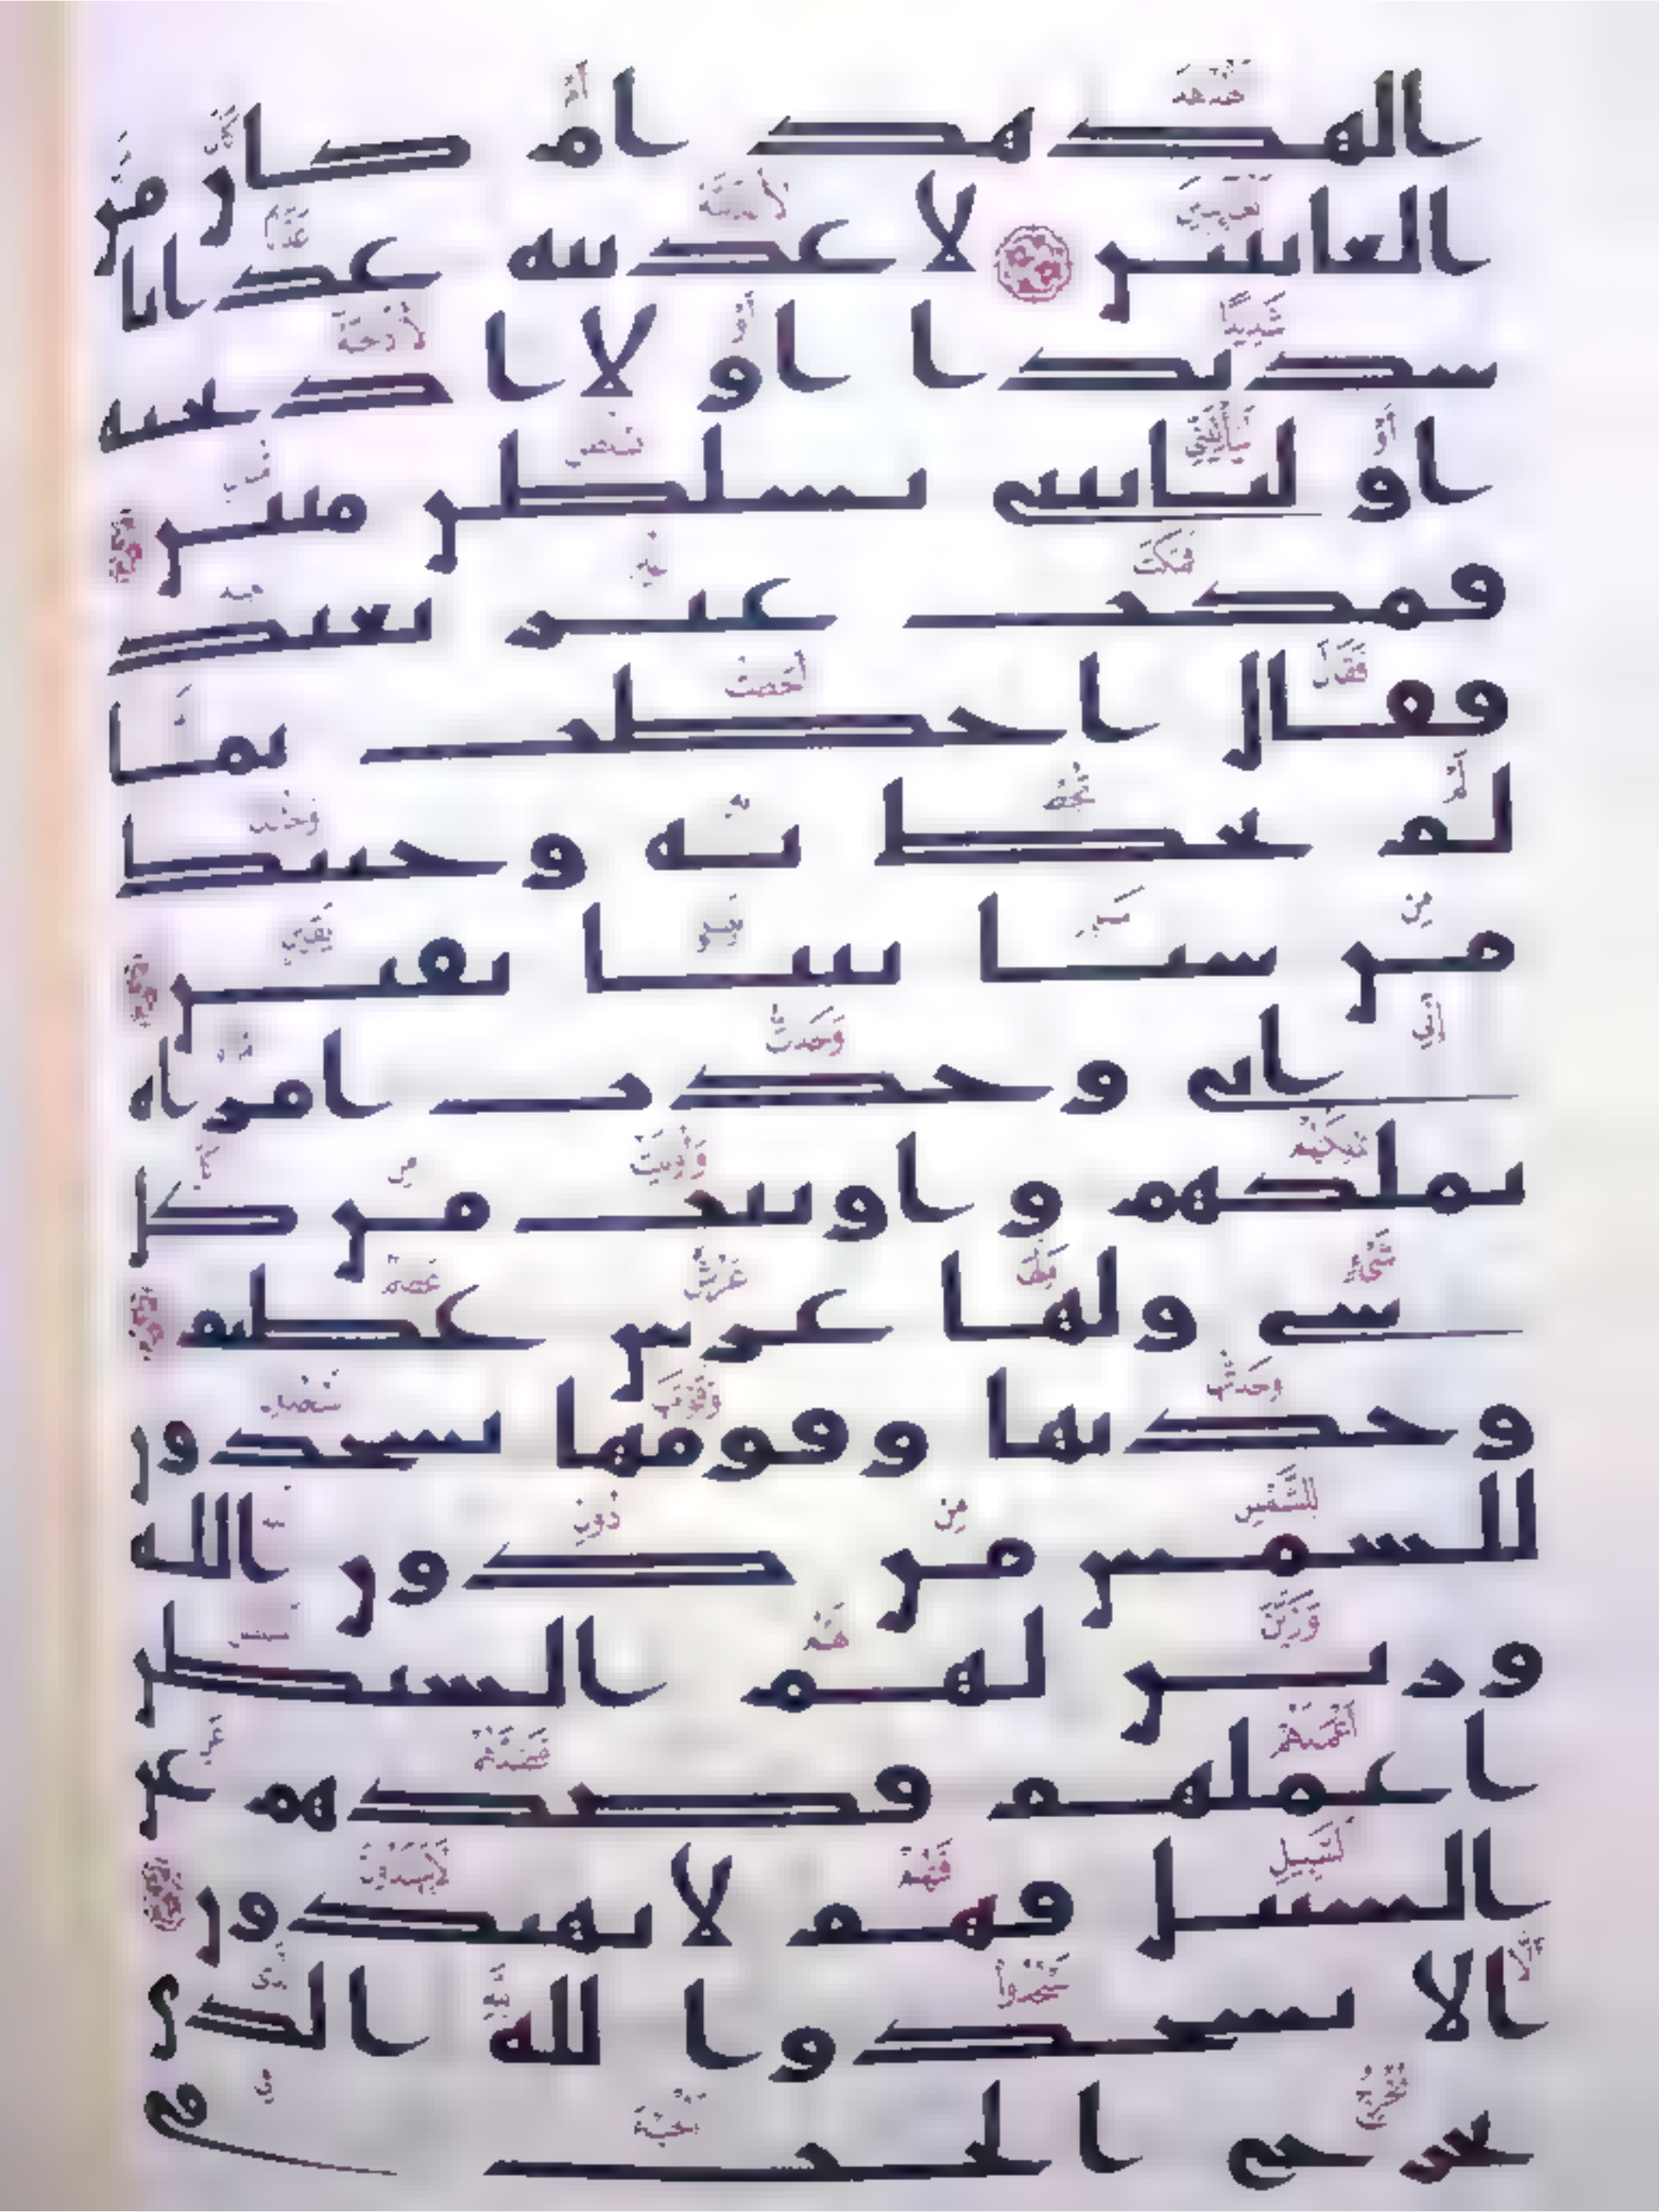 الهدهد ام كان من
الغايبين لاعذبنه عذابا
شديدا او لااذبحنه
او لياتيني بسلطن مبين
فمكث غير بعيد
فقال احطت بما
لم تحط به وجيتك
من سبا بنبا يقين
اني وجدت امراه
تملكهم واوتيت من كل
شي ولها عرش عظيم
وجدتها وقومها يسجدون
للشمس من دون الله
وزين لهم الشيطن
اعملهم فصدهم عن
السبيل فهم لا يهتدون
الا يسجدوا لله الذي
يخرج الخب في